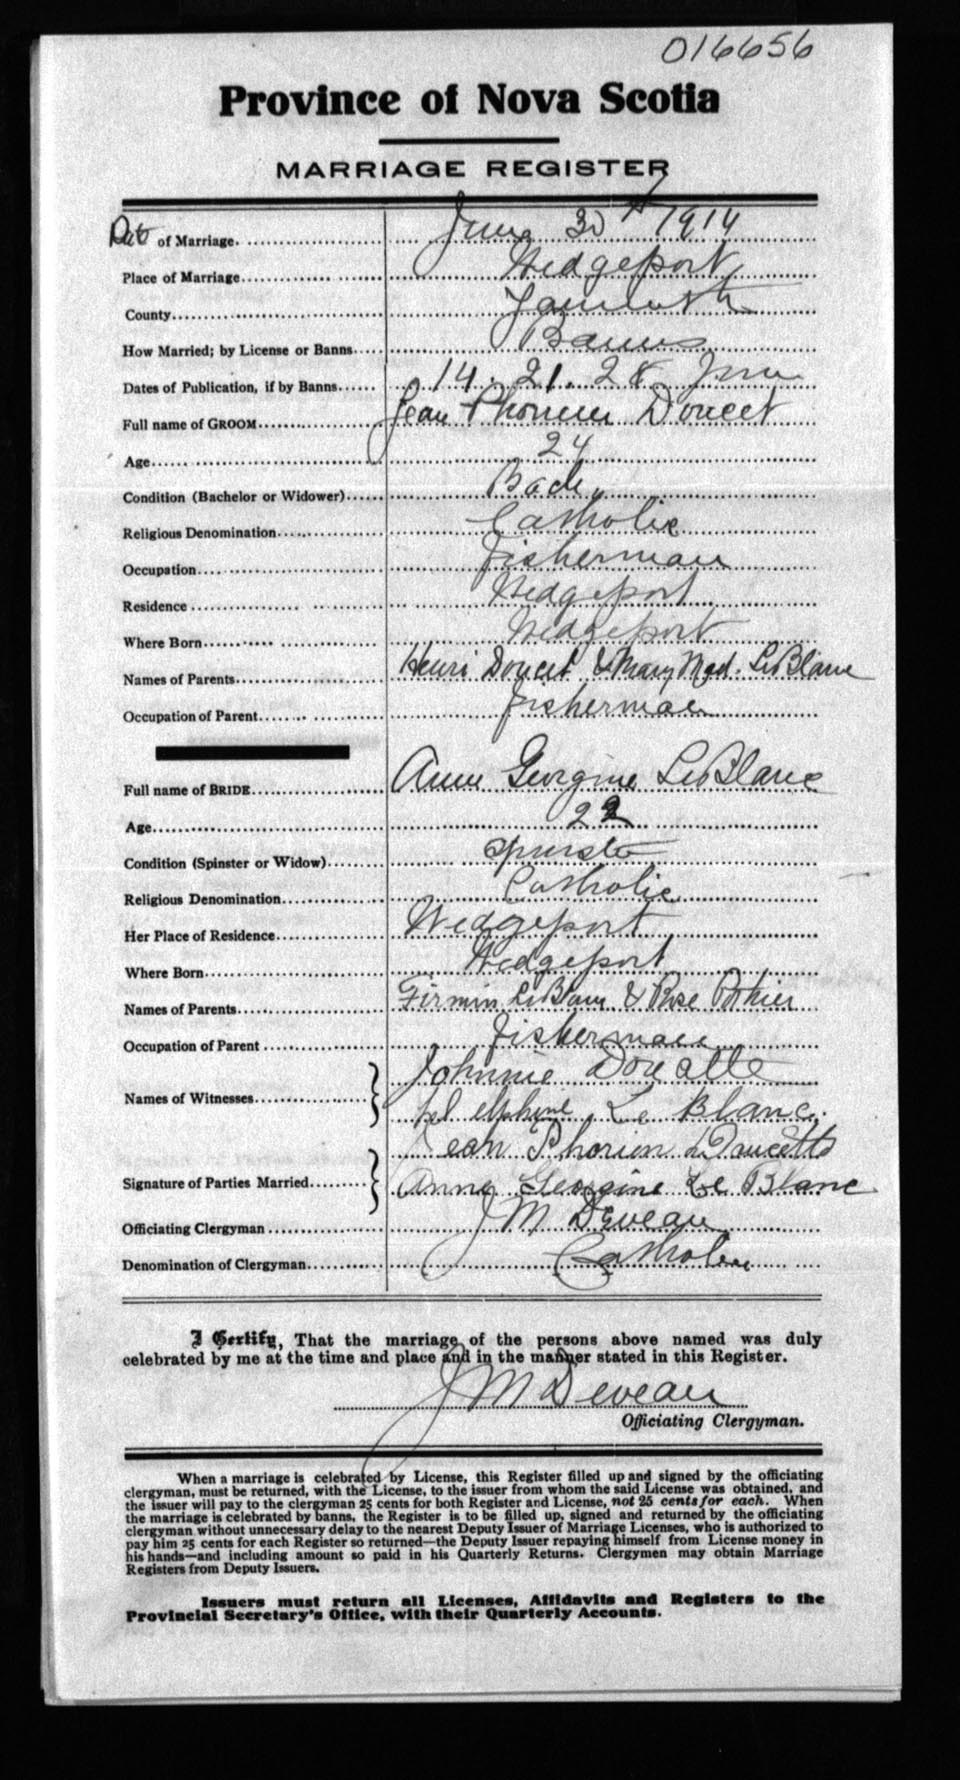 016656
Province of Nova Scotia
MARRIAGE REGISTER
Date of Marriage. June 30th 1914
Place of Marriage. Wedgeport
County. Yarmouth
How Married; by License or Banns. Banns
Dates of Publication, if by Banns. 14. 21. 28 June
Full name of GROOM. Jean Doucet
Age. 24
Condition (Bachelor or Widower). Bach.
Religious Denomination. Catholic
Occupation. Fisherman
Residence Wedgeport
Where Born. Wedgeport
Names of Parents. Henri Doucet & Mary Mad. LeBlanc
Occupation of Parent. Fisherman
Full name of BRIDE. Anne Georgine LeBlanc
Age. 22
Condition (Spinster or Widow). Spinster
Religious Denomination. Catholic
Her Place of Residence. Wedgeport
Where Born. Wedgeport
Names of Parents. Firmin LeBlanc & Rose Pothier
Occupation of Parent Fisherman
Names of Witnesses. Johnnie Doucette
Delphine Le Blanc.
Signature of Parties Married. Jean Doucette
Anne Georgine Le Blanc
Officiating Clergyman J M Deveau
Denomination of Clergyman. Catholic
I Certify, That the marriage of the persons above named was duly
celebrated by me at the time and place and in the manner stated in this Register.
J M Deveau
Officiating Clergyman.
When a marriage is celebrated by License, this Register filled up and signed by the officiating
clergyman, must be returned, with the License, to the issuer from whom the said License was obtained, and
the issuer will pay to the clergyman 25 cents for both Register and License, not 25 cents for each. When
the marriage is celebrated by banns, the Register is to be filled up, signed and returned by the officiating
clergyman without unnecessary delay to the nearest Deputy Issuer of Marriage Licenses, who is authorized to
pay him 25 cents for each Register so returned—the Deputy Issuer repaying himself from License money in
his hands—and including amount so paid in his Quarterly Returns. Clergymen may obtain Marriage
Registers from Deputy Issuers.
Issuers must return all Licenses, Affidavits and Registers to the
Provincial Secretary's Office, with their Quarterly Accounts.